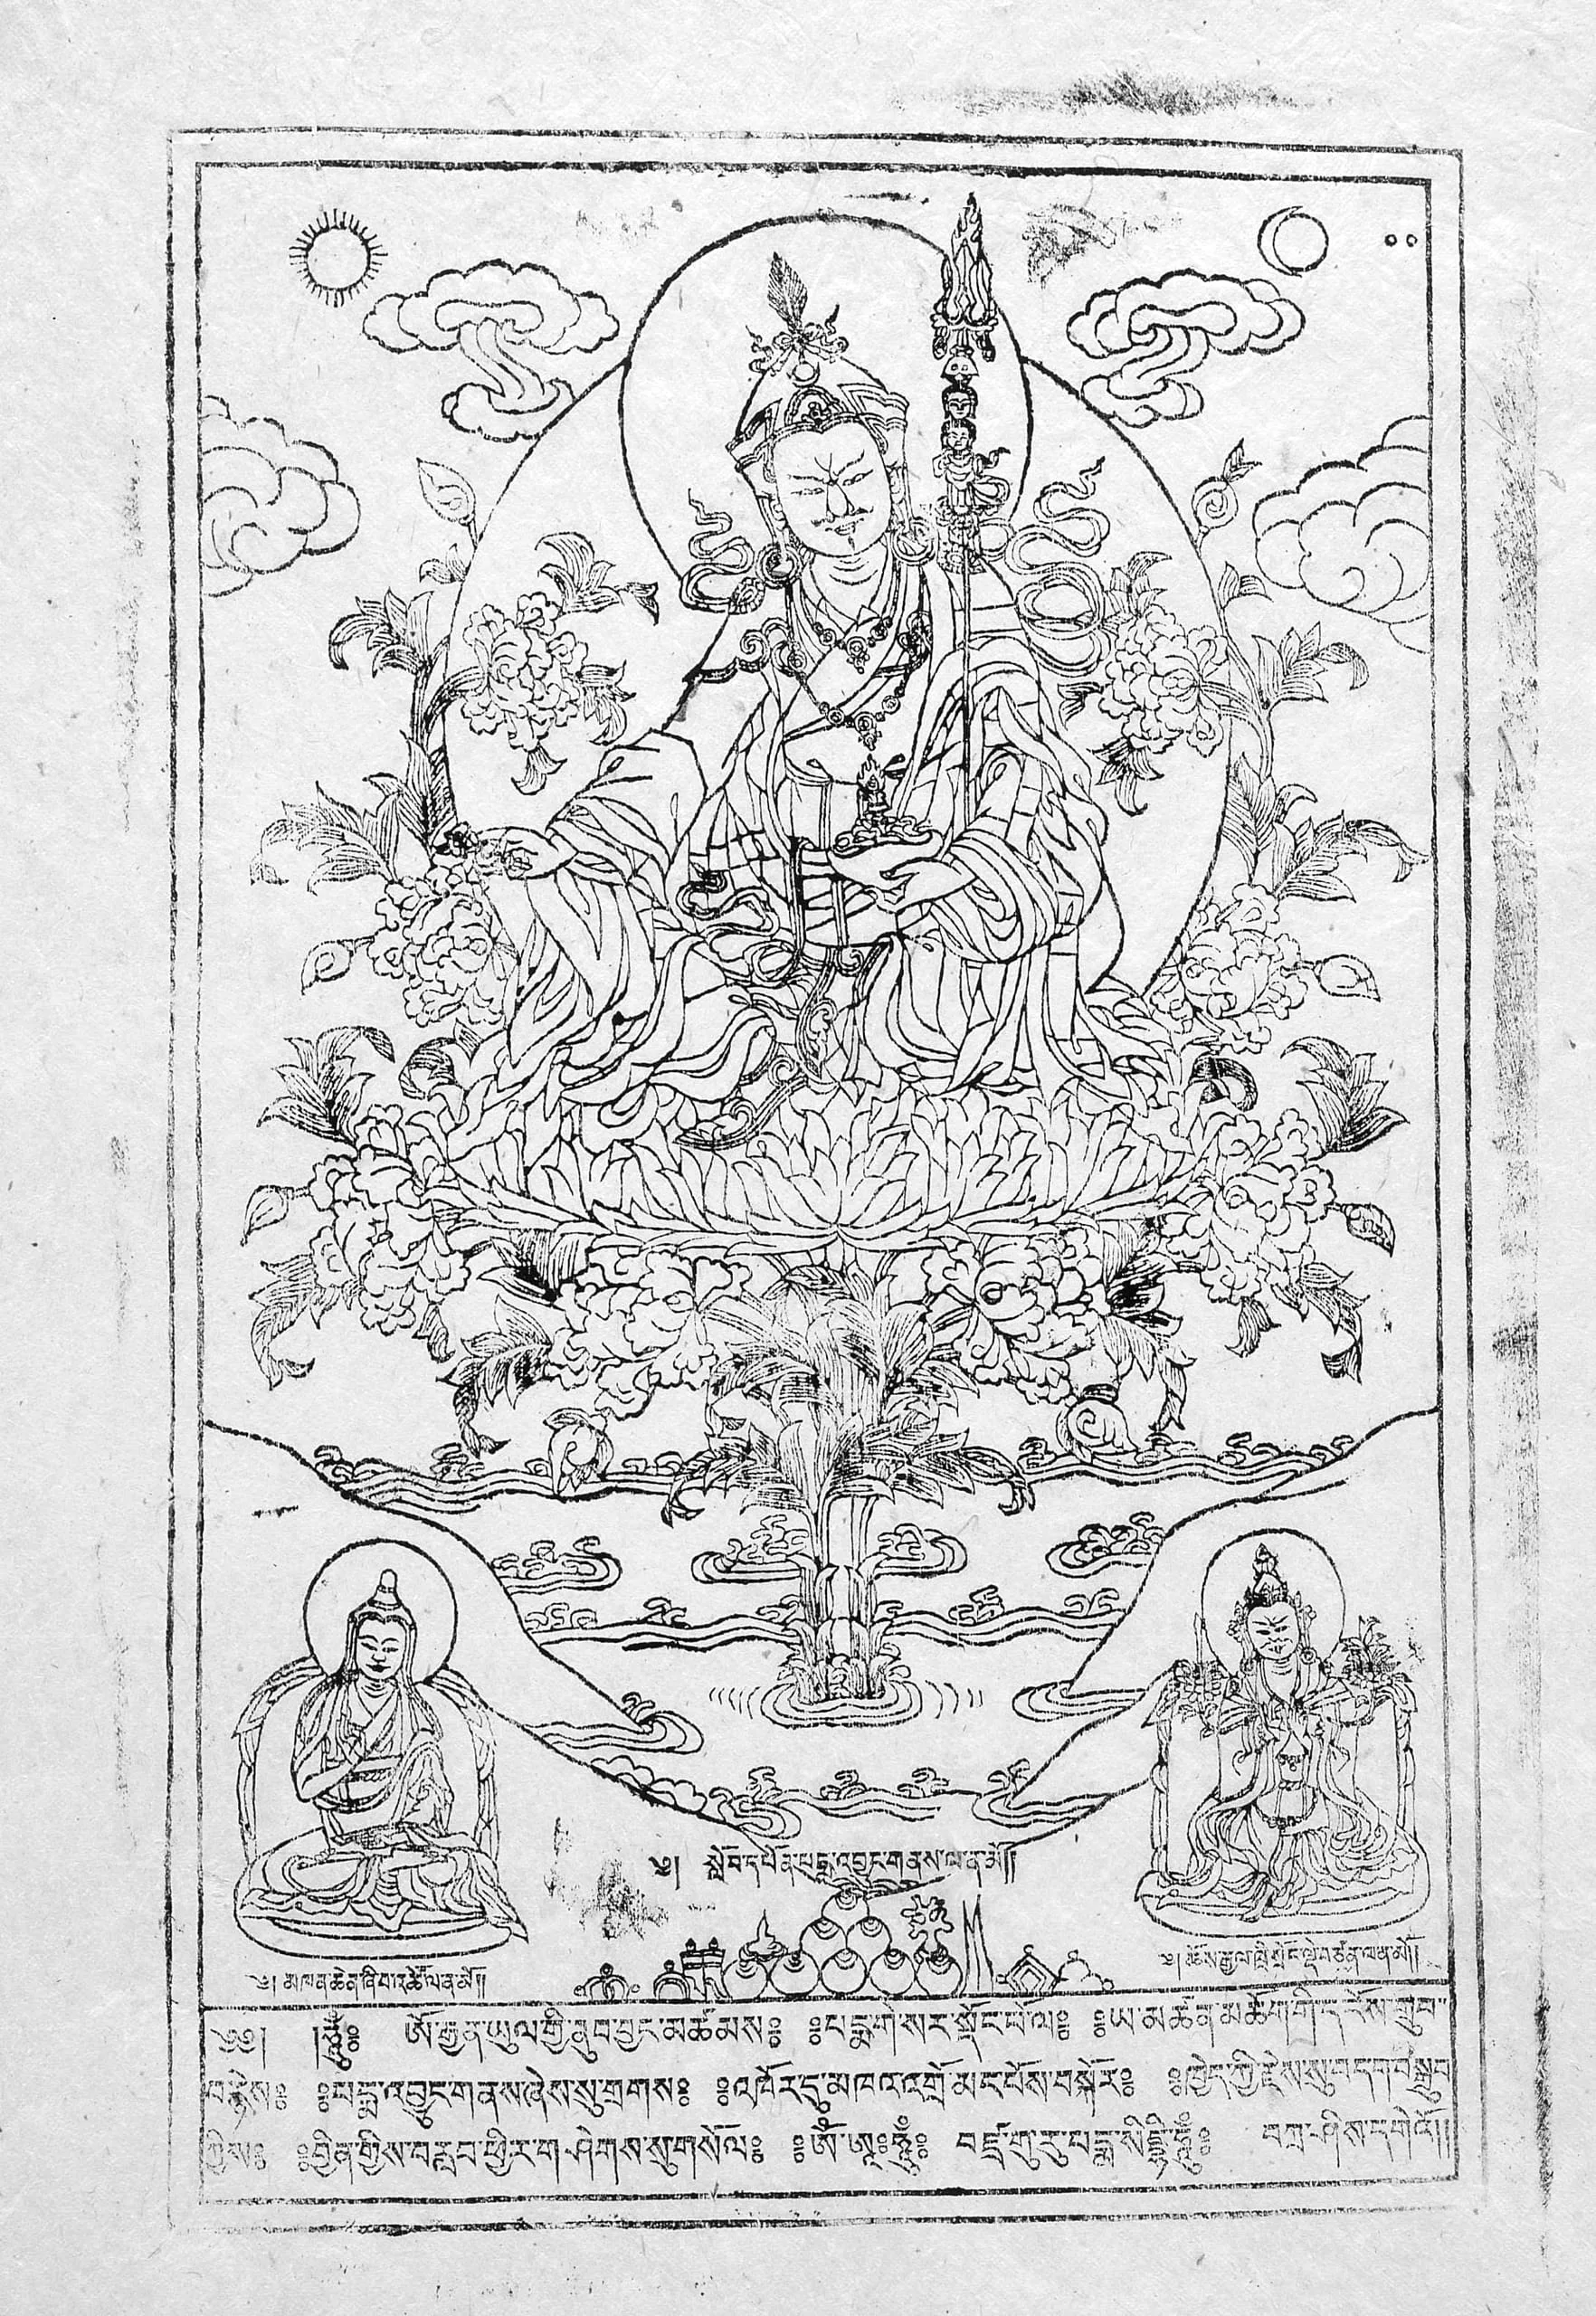 ༄། སློབ་དཔོན་པདྨ་འབྱུང་གནས་ལ་ན་མོ།།
༄། མཁན་ཆེན་ཞི་བ་འཚོ་ལ་ན་མོ།།
༄། ཆོས་རྒྱལ་ཁྲི་སྲོང་ལྡེ་བཙན་ལ་ན་མོ།།
༄༅། །ཧཱུྃ༔ ཨོ་རྒྱན་ཡུལ་གྱི་ནུབ་བྱང་མཚམས༔ ༔པདྨ་གེ་སར་སྡོང་པོ་ལ༔ ༔ཡ་མཚན་མཆོག་གི་དངོས་གྲུབ་
བརྙེས༔ ༔པདྨ་འབྱུང་གནས་ཞེས་སུ་གྲགས༔ ༔འཁོར་དུ་མཁའ་འགྲོ་མང་པོས་བསྐོར༔ ༔ཁྱེད་ཀྱི་རྗེས་སུ་བདག་བསྒྲུབ་
ཀྱིས༔ ༔བྱིན་གྱིས་བརླབ་ཕྱིར་གཤེགས་སུ་གསོལ༔ ༔ཨོཾ་ཨཱཿཧཱུྃ༔ བཛྲ་གུ་རུ་པདྨ་སིདྡྷི་ཧཱུྃ༔ བཀྲ་ཤིས་དགེའོ།།